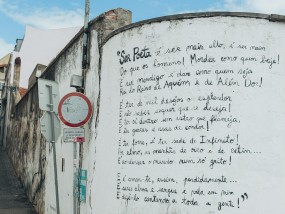 "Ser Poeta é ser mais alto, é ser maior
Do que os homens! Morder como quem beija!
É ser mendigo e dar como quem seja
Rei do Reino de Aquém e de Além Dor!
É ter de mil desejos o esplendor
E não saber sequer que se deseja!
É ter cá dentro um astro que flameja,
É ter garras e asas de condor!
É ter fome, é ter sede de Infinito!
Por elmo, as manhãs de oiro e de cetim...
É condensar o mundo num só grito!
E é amar-te, assim, perdidamente...
É seres alma e sangue e vida em mim
E dizê-lo cantando a toda a gente!"